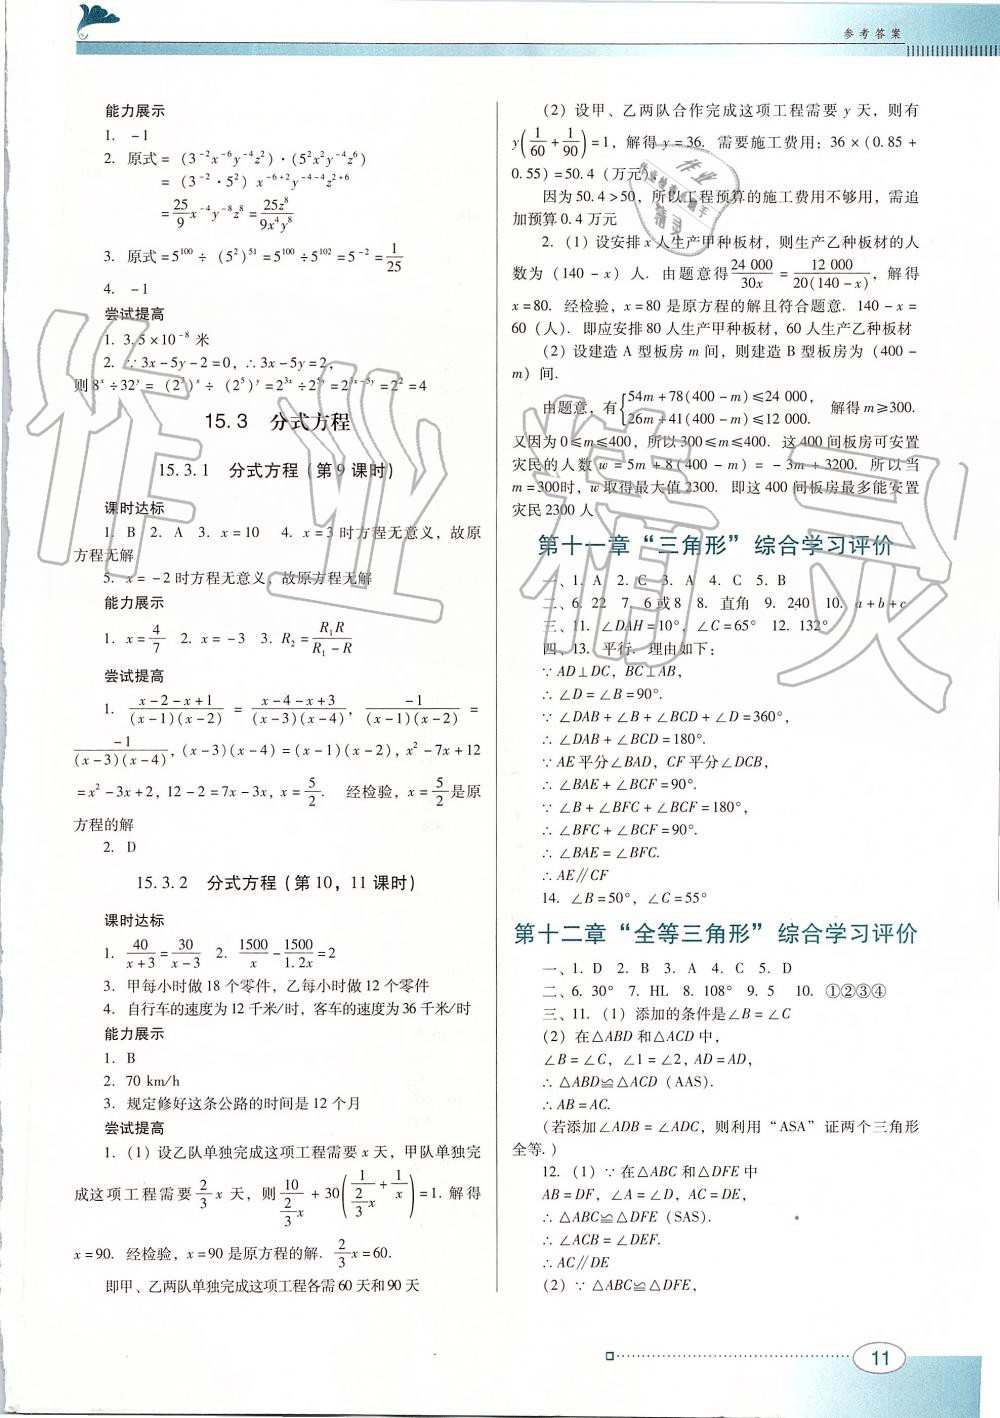 参考答案
能力展示
1. －1
2. 原式=（3⁻²x⁻⁶y⁻⁴z²）·（5²x²y⁻⁴z⁶）
=（3⁻²·5²）x⁻⁶⁺²y⁻⁴⁻⁴z²⁺⁶
=25/9 x⁻⁴y⁻⁸z⁸=25z⁸/9x⁴y⁸
3. 原式=5¹⁰⁰÷（5²）⁵¹=5¹⁰⁰÷5¹⁰²=5⁻²=1/25
4. －1
尝试提高
1. 3.5×10⁻⁸米
2. ∵3x－5y－2=0，∴3x－5y=2，
则8ˣ÷32ʸ=（2³）ˣ÷（2⁵）ʸ=2³ˣ÷2⁵ʸ=2³ˣ⁻⁵ʸ=2²=4
15.3 分式方程
15.3.1 分式方程（第9课时）
课时达标
1. B 2. A 3. x=10 4. x=3时方程无意义，故原
方程无解
5. x=－2时方程无意义，故原方程无解
能力展示
1. x=4/7 2. x=－3 3. R₂=R₁R/(R₁－R)
尝试提高
1. (x－2－x+1)/((x－1)(x－2)) = (x－4－x+3)/((x－3)(x－4))，－1/((x－1)(x－2)) =
－1/((x－3)(x－4))，(x－3)(x－4)=(x－1)(x－2)，x²－7x+12
=x²－3x+2，12－2=7x－3x，x=5/2. 经检验，x=5/2是原
方程的解
2. D
15.3.2 分式方程（第10，11课时）
课时达标
1. 40/(x+3)=30/(x－3) 2. 1500/x－1500/1.2x=2
3. 甲每小时做18个零件，乙每小时做12个零件
4. 自行车的速度为12千米/时，客车的速度为36千米/时
能力展示
1. B
2. 70 km/h
3. 规定修好这条公路的时间是12个月
尝试提高
1.（1）设乙队单独完成这项工程需要x天，甲队单独完
成这项工程需要2/3 x天，则10/(2/3 x)+30(1/(2/3 x)+1/x)=1. 解得
x=90. 经检验，x=90是原方程的解. 2/3 x=60.
即甲、乙两队单独完成这项工程各需60天和90天
（2）设甲、乙两队合作完成这项工程需要y天，则有
y(1/60+1/90)=1，解得y=36. 需要施工费用：36×（0.85+
0.55）=50.4（万元）
因为50.4>50，所以工程预算的施工费用不够用，需追
加预算0.4万元
2.（1）设安排x人生产甲种板材，则生产乙种板材的人
数为（140－x）人. 由题意得24 000/30x=12 000/20(140－x)，解得
x=80. 经检验，x=80是原方程的解且符合题意. 140－x=
60（人）. 即应安排80人生产甲种板材，60人生产乙种板材
（2）设建造A型板房m间，则建造B型板房为（400－
m）间.
由题意，有{54m+78(400－m)≤24 000，
26m+41(400－m)≤12 000. 解得m≥300.
又因为0≤m≤400，所以300≤m≤400. 这400间板房可安置
灾民的人数w=5m+8(400－m)=－3m+3200. 所以当
m=300时，w取得最大值2300. 即这400间板房最多能安置
灾民2300人
第十一章“三角形”综合学习评价
一、1. A 2. C 3. A 4. C 5. B
二、6. 22 7. 6或8 8. 直角 9. 240 10. a+b+c
三、11. ∠DAH=10°，∠C=65° 12. 132°
四、13. 平行. 理由如下：
∵AD⊥DC，BC⊥AB，
∴∠D=∠B=90°.
∵∠DAB+∠B+∠BCD+∠D=360°，
∴∠DAB+∠BCD=180°.
∵AE平分∠BAD，CF平分∠DCB，
∴∠BAE+∠BCF=90°.
∵∠B+∠BFC+∠BCF=180°，
∴∠BFC+∠BCF=90°.
∴∠BAE=∠BFC.
∴AE∥CF
14. ∠B=50°，∠C=55°
第十二章“全等三角形”综合学习评价
一、1. D 2. B 3. A 4. C 5. D
二、6. 30° 7. HL 8. 108° 9. 5 10. ①②③④
三、11.（1）添加的条件是∠B=∠C
（2）在△ABD和△ACD中，
∠B=∠C，∠1=∠2，AD=AD，
∴△ABD≌△ACD（AAS）.
∴AB=AC.
（若添加∠ADB=∠ADC，则利用“ASA”证两个三角形
全等.）
12.（1）∵在△ABC和△DFE中
AB=DF，∠A=∠D，AC=DE，
∴△ABC≌△DFE（SAS）.
∴∠ACB=∠DEF.
∴AC∥DE
（2）∵△ABC≌△DFE，
11
作业精灵